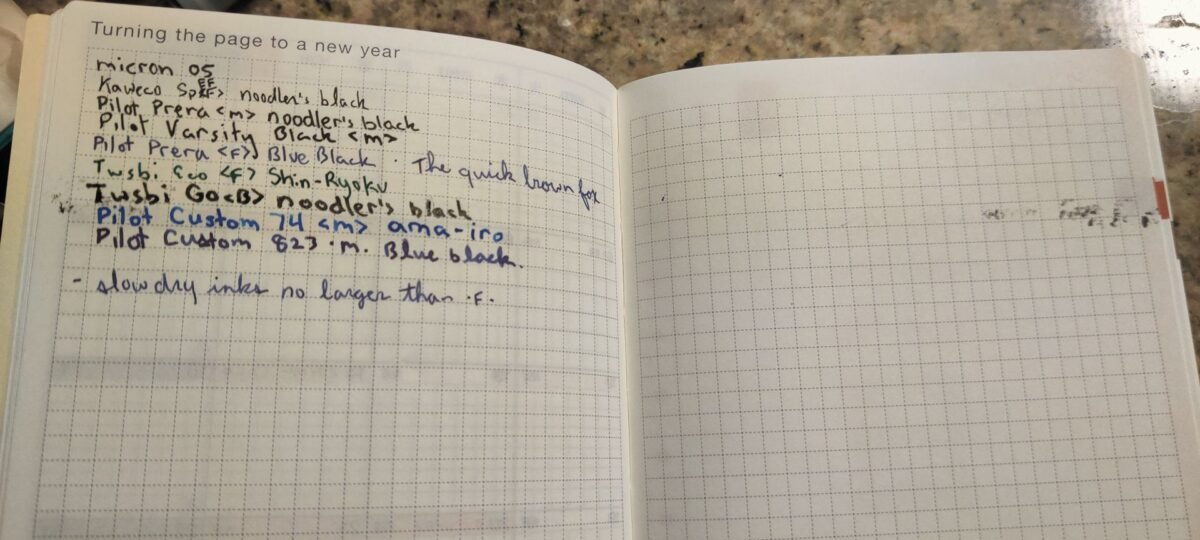 Turning the page to a new year
micron 05
Kaweco Sp EF> noodler's black
Pilot Prera <m> noodler's black
Pilot Varsity Black <m>
Pilot Prera <F> Blue Black . The quick brown fox
Twsbi Eco <F> Shin-Ryoku
Twsbi Go <B> noodler's black
Pilot Custom 74 <m> ama-iro
Pilot Custom 823 · m. Blue black.
- slow dry inks no larger than ·F.